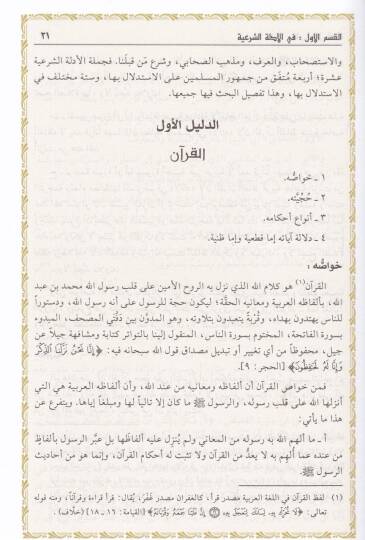 القسم الأول : في الأدلة الشرعية ٢١
والاستصحاب، والعرف، ومذهب الصحابي، وشرع مَن قبلَنا. فجملة الأدلة الشرعية
عشرة؛ أربعة مُتفَق من جمهور المسلمين على الاستدلال بها، وستة مختلف في
الاستدلال بها، وهذا تفصيل البحث فيها جميعها.
الدليل الأول
القرآن
١ ـ خواصُه.
٢ ـ حُجيَّته.
٣ ـ أنواع أحكامه.
٤ ـ دلالة آياته إما قطعية وإما ظنية.
خواصُه :
القرآن(١) هو كلام الله الذي نزل به الروح الأمين على قلب رسول الله محمد بن عبد
الله، بألفاظه العربية ومعانيه الحقَّة؛ ليكون حجة للرسول على أنه رسول الله، ودستوراً
للناس يهتدون بهداه، وقُربةً يتعبدون بتلاوته، وهو المدوَّن بين دَفَّتي المصحف، المبدوء
بسورة الفاتحة، المختوم بسورة الناس، المنقول إلينا بالتواتر كتابة ومشافهة جيلاً عن
جيل، محفوظاً من أي تغيير أو تبديل مصداق قول الله سبحانه فيه: ﴿إِنَّا نَحْنُ نَزَّلْنَا الذِّكْرَ
وَإِنَّا لَهُ لَحَافِظُونَ﴾ [الحجر: ٩].
فمن خواص القرآن أن ألفاظه ومعانيه من عند الله، وأن ألفاظه العربية هي التي
أنزلها الله على قلب رسوله، والرسول ﷺ ما كان إلا تالياً لها ومبلغاً إياها. ويتفرع عن
هذا ما يأتي:
أ ـ ما ألهم الله به رسوله من المعاني ولم يُنزل عليه ألفاظها بل عبَّر الرسول بألفاظٍ
من عنده عما أُلهِم به لا يعدُّ من القرآن ولا تثبت له أحكام القرآن، وإنما هو من أحاديث
الرسول ﷺ.
(١) لفظ القرآن في اللغة العربية مصدر قرأ، كالغفران مصدر غَفَرَ، يُقال: قرأ قراءة وقرآناً، ومنه قوله
تعالى: ﴿لَا تُحَرِّكْ بِهِ لِسَانَكَ لِتَعْجَلَ بِهِ ۝ إِنَّ عَلَيْنَا جَمْعَهُ وَقُرْآنَهُ﴾ [القيامة: ١٦ ـ ١٨] (خلّاف).